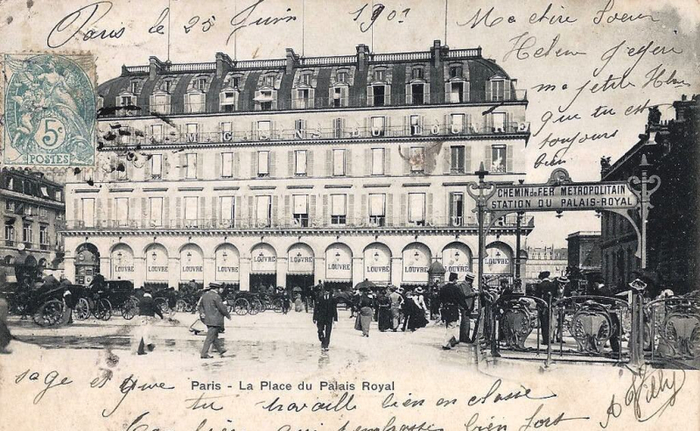 Paris le 25 Juin 190
Ma chère Soeur
Helene j'espère
ma petite
que tu est
toujours
bien
5
POSTES
MAGASINS DU LOUVRE
CHEMIN DE FER METROPOLITAIN
STATION DU PALAIS-ROYAL
LOUVRE LOUVRE LOUVRE LOUVRE LOUVRE LOUVRE LOUVRE LOUVRE LOUVRE LOUVRE
Paris - La Place du Palais Royal
sage et que tu travaille bien en classe
qui t'embrasse bien fort